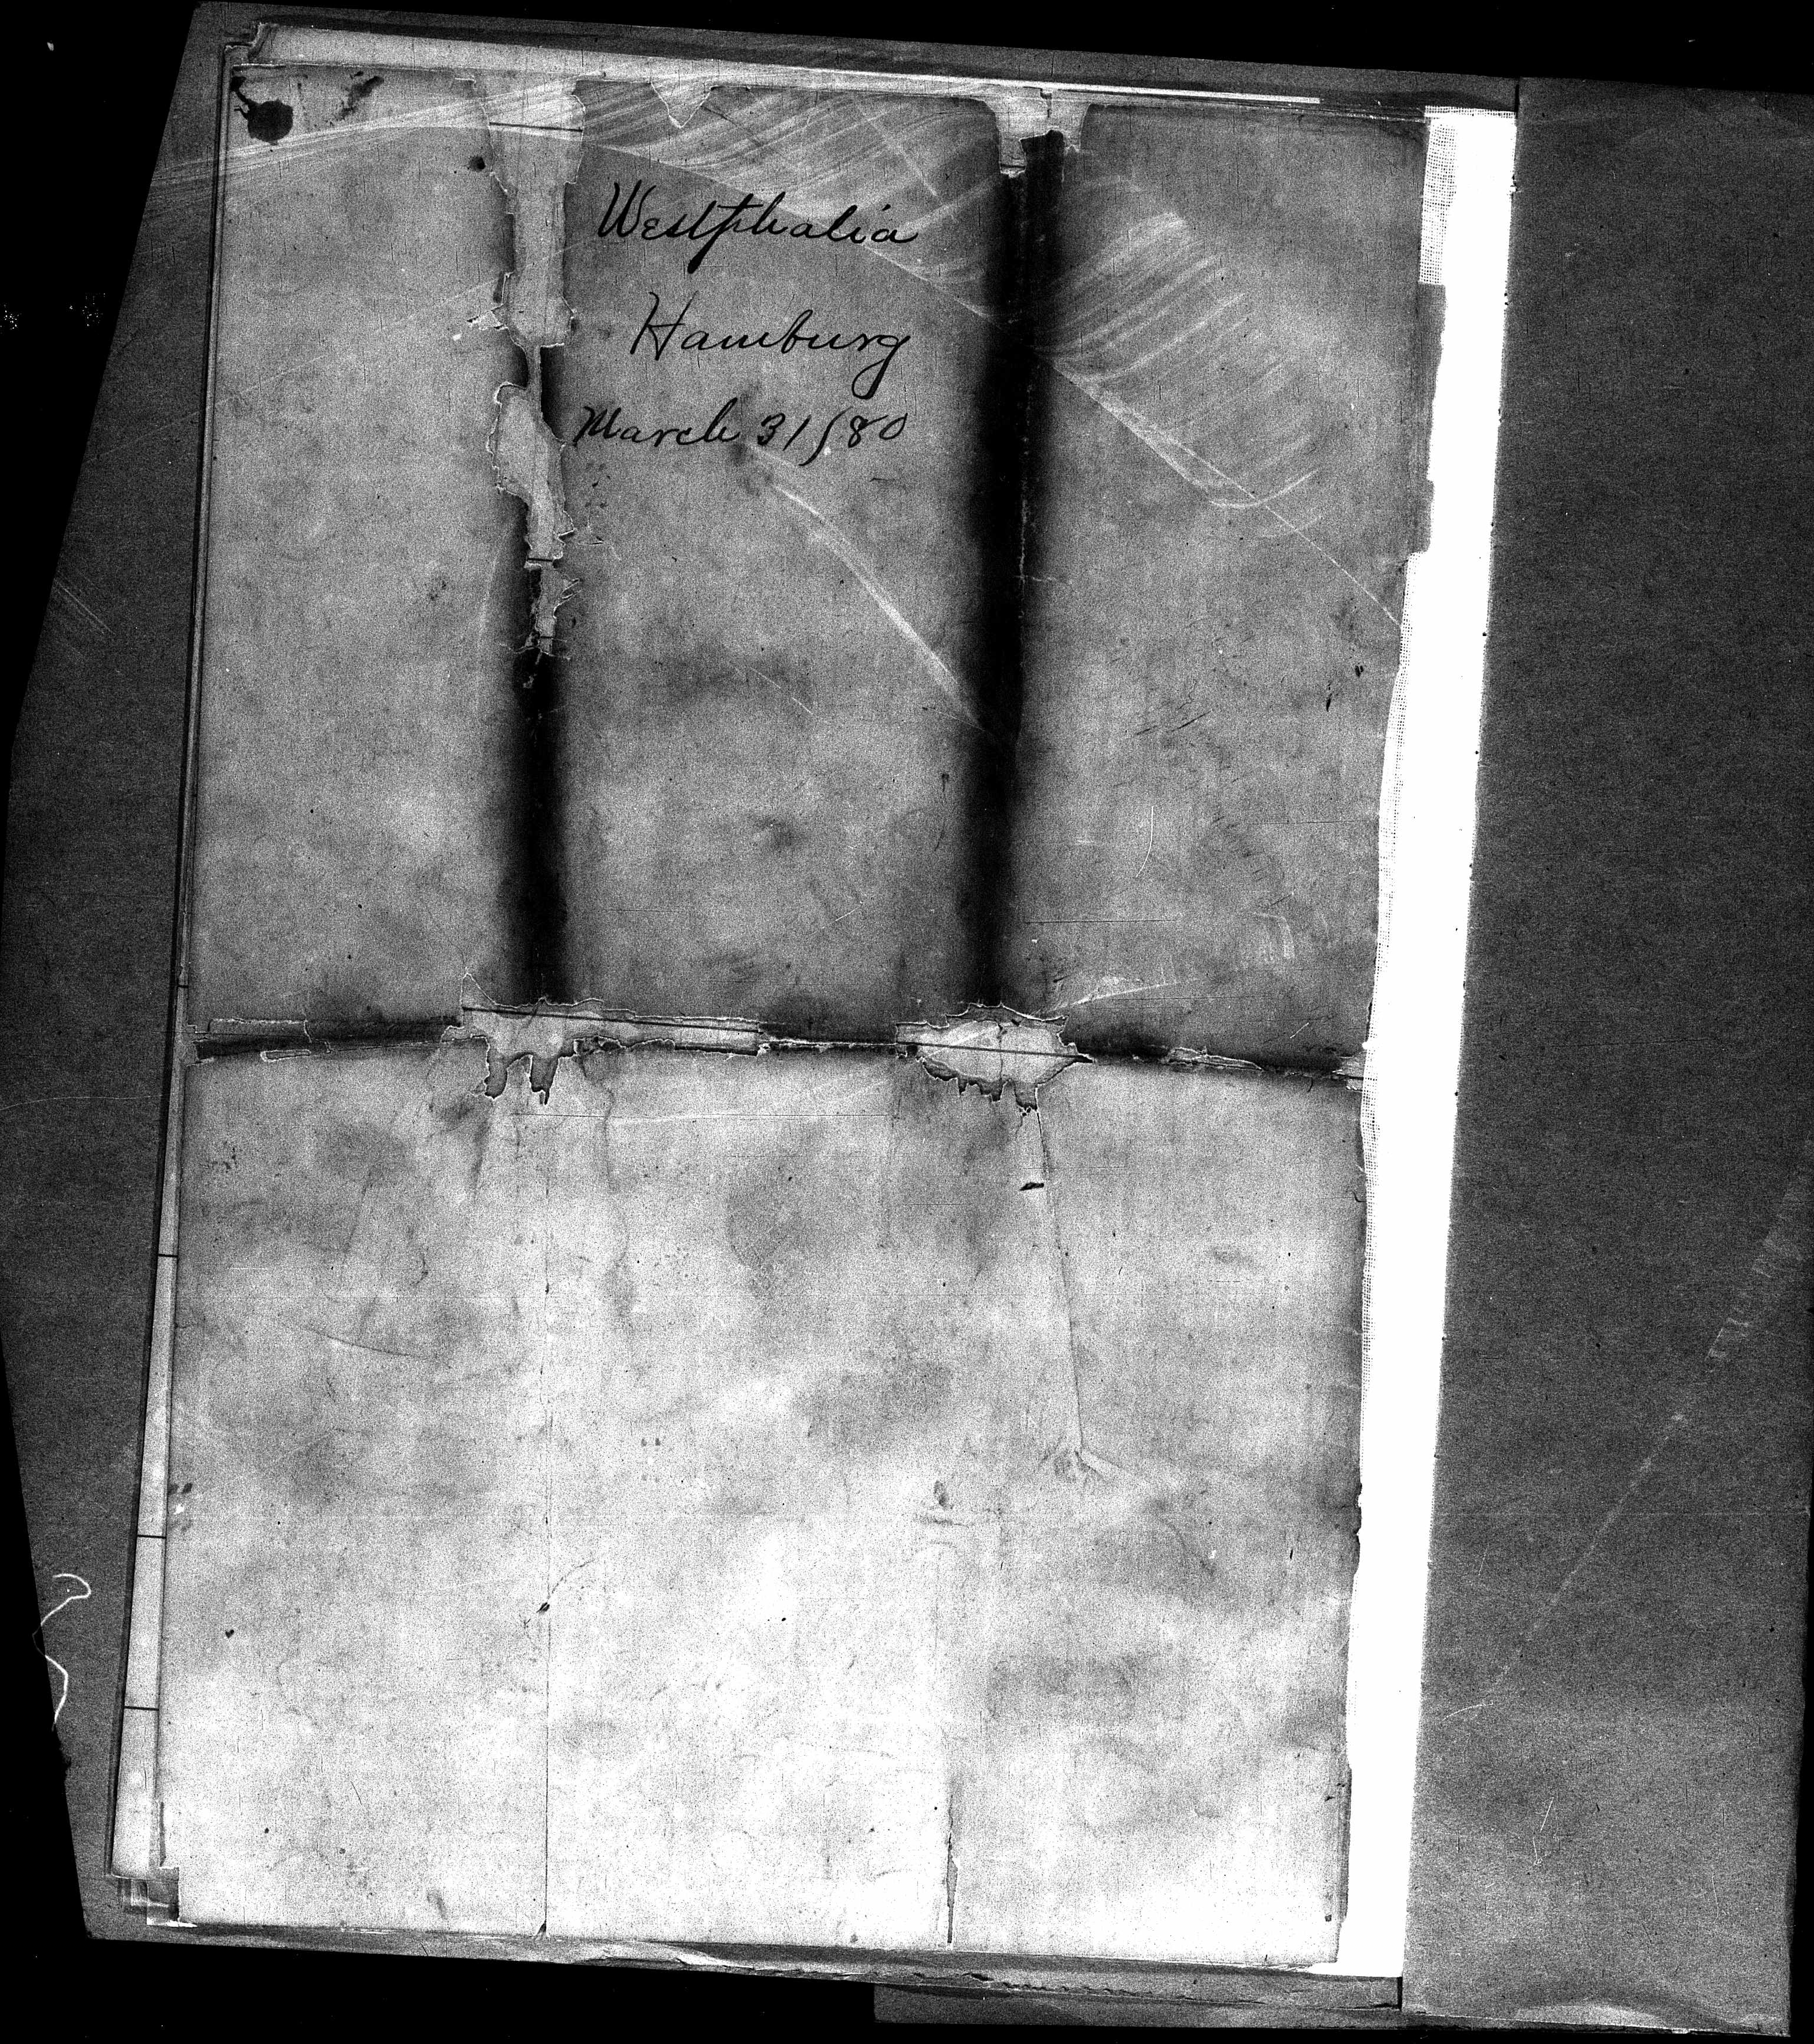 Westphalia
Hamburg
March 31/80